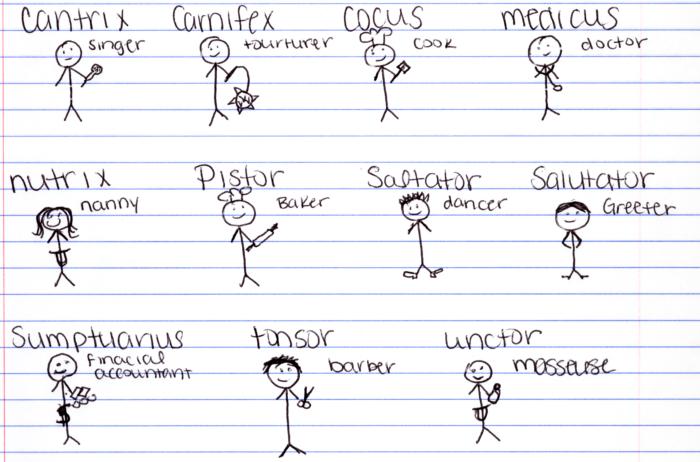 Cantrix Carnifex Cocus medicus
singer tourturer cook doctor
nutrix Pistor Saltator Salutator
nanny Baker dancer Greeter
Sumptuarius tonsor unctor
finacial barber masseuse
accountant
$